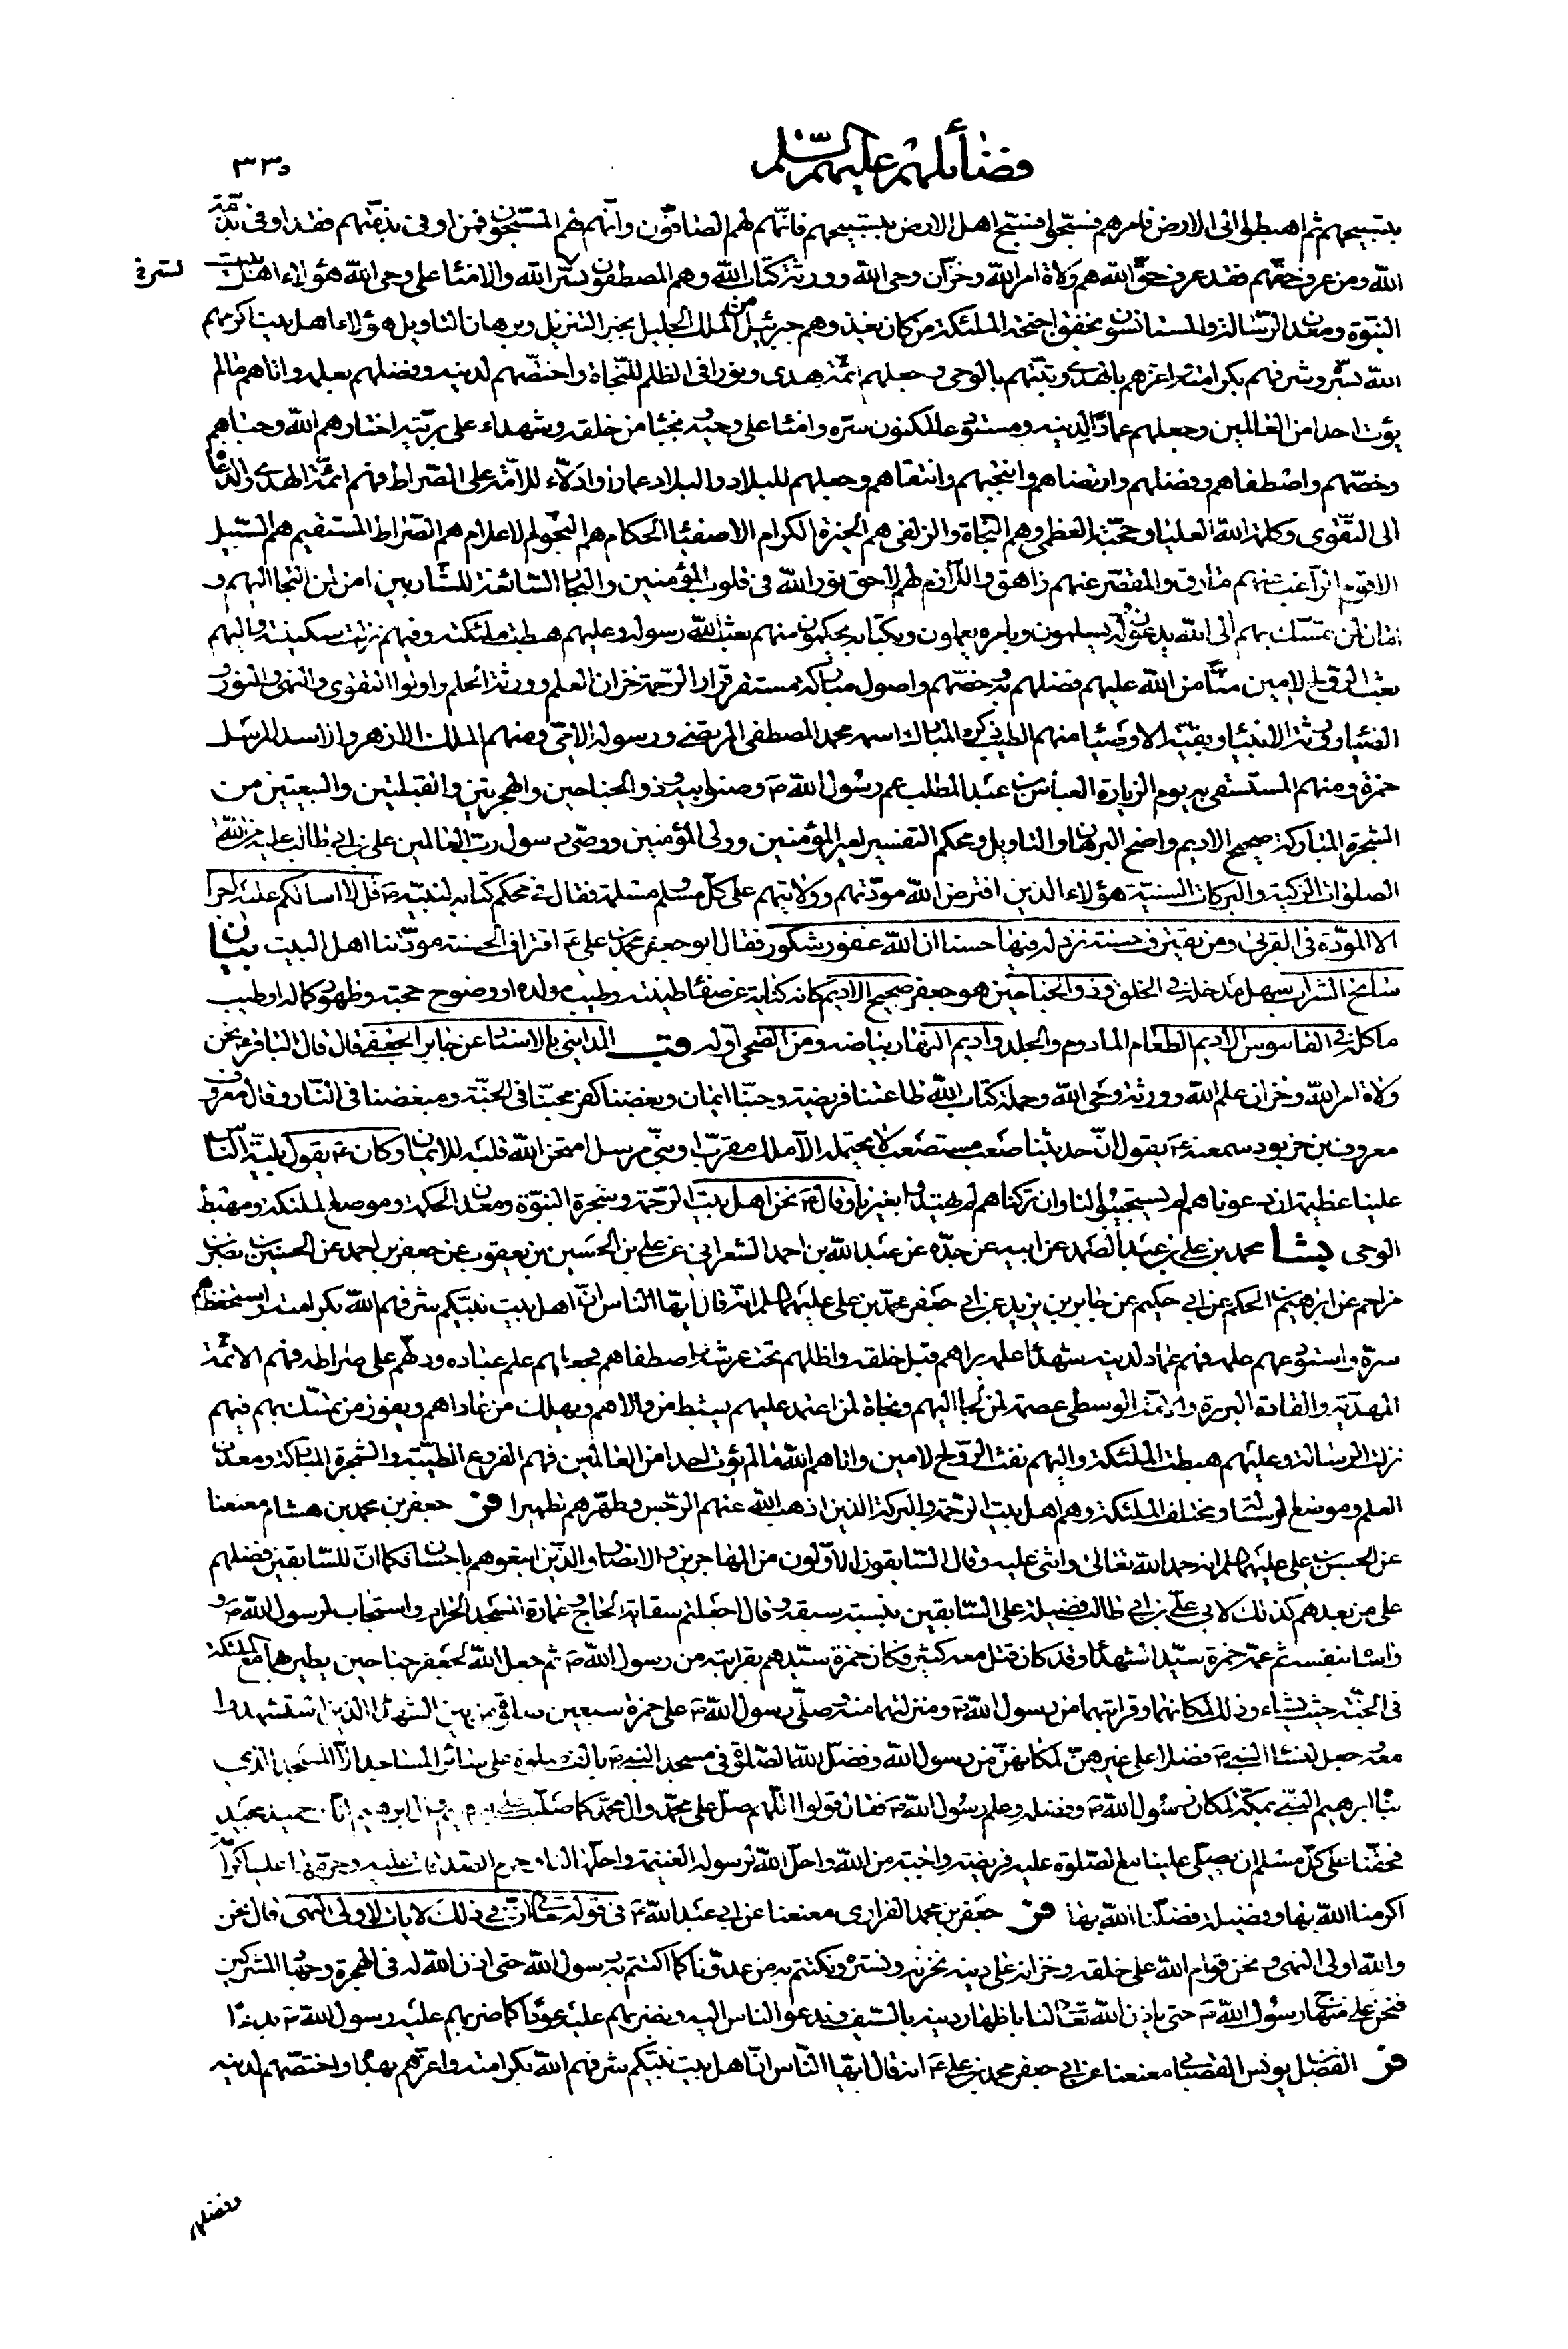 فضائلهم عليهم السلم
٣٣٥
بتسبيحهم ثم اهبطوا الى الارض فامرهم فسبّحوا فسبّح اهل الارض بتسبيحهم فانّهم لهم الصادقون وانّهم لهم المسبّحون فمن اوفى بذمّتهم فقد اوفى بذمّة
الله ومن عرف حقّهم فقد عرف حقّ الله هم ولاة امر الله وخزّان وحى الله وورثة كتاب الله وهم المصطفون بسرّ الله والامناء على وحى الله هؤلاء اهل بيت
النبوّة ومعدن الرسالة والمستانسون بخفق اجنحة الملئكة من كان يغذوهم جبرئيل من الملك الجليل بخبر التنزيل وبرهان التاويل هؤلاء اهل بيت اكرمهم
الله بسرّه وشرفهم بكرامته واعزهم بالهدى وثبّتهم بالوحى وجعلهم ائمّة هدى ونورا فى الظلم للنّجاة واختصّهم لدينه وفضلهم بعلمه واتاهم مالم
يؤت احدا من العالمين وجعلهم عمادا لدينه ومستودعا لمكنون سرّه وامناء على وحيه ونجباء من خلقه وشهداء على بريّته اختارهم الله وحباهم
وخصّهم واصطفاهم وفضلهم وارتضاهم وانتجبهم وانتقاهم وجعلهم للبلاد والعباد عمارا وادلّاء للامّة على الصّراط فهم ائمّة الهدى والدعاة
الى التّقوى وكلمة الله العليا وحجّة الله العظمى وهم النجاة والزلفى هم الخيرة الكرام الاصفياء الحكام هم النجوم الاعلام هم الصّراط المستقيم هم السّبيل
الاقوم الرّاغب عنهم مارق والمقصّر عنهم زاهق واللازم لهم لاحق نور الله فى قلوب المؤمنين والبحار السّائغة للشّاربين امن لمن التجا اليهم و
امان لمن تمسّك بهم الى الله يدعون وله يسلمون وبامره يعملون وبكتابه يحكمون منهم بعث الله رسوله وعليهم هبطت ملئكته وفيهم نزلت سكينته واليهم
بعث الروح الامين منّا من الله عليهم فضلهم به وخصّهم واصول مباركة مستقر قرار الرّحمة خزان العلم وورثة الحلم واولوا التقوى والنهى والنور و
الضياء وورثة الانبياء وبقيّة الاوصياء منهم الطيب ذكره المبارك اسمه محمد المصطفى المرتضى ورسوله الامّى ومنهم الملك الازهر والاسد المرسل
حمزة ومنهم المستسقى به يوم الزيارة العباس بن عبد المطلب عم رسول الله ص وصنو ابيه وذو الجناحين والهجرتين والقبلتين والبيعتين من
الشجرة المباركة صحيح الاديم واضح البرهان والتاويل ومحكم التفسير امير المؤمنين وولى المؤمنين ووصى رسول رب العالمين على بن ابي طالب عليه من الله
الصلوات الزكية والبركات السنيّة هؤلاء الذين افترض الله مودّتهم وولايتهم على كلّ مسلم ومسلمة فقال فى محكم كتابه لنبيّه ص قل لا اسالكم عليه اجرا
الا المودّة فى القربى ومن يقترف حسنة نزد له فيها حسنا ان الله غفور شكور فقال ابو جعفر محمد بن على ع اقتراف الحسنة مودّتنا اهل البيت بيان
شامخ الشراب سهل مدخله فى الحلق وذو الجناحين هو جعفر صحيح الاديم كانه كناية عن صفاء طينته وطيب مولده او وضوح حجته وظهور كماله او طيب
ماكله فى القاموس الاديم الطعام المادوم والجلد واديم النهار بياضه ومن الضحى اوله قب المداينى بالاسناد عن جابر الجعفى قال قال الباقر ع نحن
ولاة امر الله وخزان علم الله وورثة وحى الله وحملة كتاب الله طاعتنا فريضة وحبّنا ايمان وبغضنا كفر محبّنا فى الجنّة ومبغضنا فى النّار وقال معروف
معروف بن خربوذ سمعته ع يقول انّ حديثنا صعب مستصعب لا يحتمله الّا ملك مقرّب او نبىّ مرسل او عبد امتحن الله قلبه للايمان وكان ع يقول بليّة الناس
علينا عظيمة ان دعوناهم لم يستجيبوا لنا وان تركناهم لم يهتدوا بغيرنا وقال ع نحن اهل بيت الرّحمة وشجرة النبوّة ومعدن الحكمة وموضع الملئكة ومهبط
الوحى بشا محمد بن على بن عبد الصّمد عن ابيه عن جدّه عن عبد الله بن احمد الشعرانى عن على بن الحسين بن يعقوب عن جعفر بن احمد عن الحسين بن نصر بن
مزاحم عن ابراهيم بن الحكم عن ابى حكيم عن جابر بن يزيد عن ابى جعفر محمّد بن على عليهما السلم انّه قال ايّها الناس انّ اهل بيت نبيّكم شرفهم الله بكرامته واستحفظهم
سرّه واستودعهم علمه فهم عماد لدينه شهداء علمه براهم قبل خلقه واظلهم تحت عرشه واصطفاهم فجعلهم علم عباده ودلهم على صراطه فهم الائمّة
المهديّة والقادة البررة والامّة الوسطى عصمة لمن لجا اليهم ونجاة لمن اعتمد عليهم يغتبط من والاهم ويهلك من عاداهم ويفوز من تمسّك بهم فيهم
نزلت الرسالة وعليهم هبطت الملئكة واليهم نفث الروح الامين واتاهم الله مالم يؤت احدا من العالمين فهم الفروع الطيّبة والشجرة المباركة ومعدن
العلم وموضع الرسالة ومختلف الملئكة وهم اهل بيت الرّحمة والبركة الذين اذهب الله عنهم الرّجس وطهّرهم تطهيرا فر جعفر بن محمد بن هشام معنعنا
عن الحسين بن على عليهما السلم انه حمد الله تعالى واثنى عليه وقال السّابقون الاوّلون من المهاجرين والانصار والّذين اتبعوهم باحسان فكما انّ للسّابقين فضلهم
على من بعدهم كذلك لابى علىّ بن ابى طالب فضيلة على السّابقين بسبقه وقال اجعلتم سقاية الحاج وعمارة المسجد الحرام واستجاب لرسول الله ص و
واساه بنفسه ثم عمّه حمزة سيّد الشهداء وقد كان قتل معه كثير فكان حمزة سيّدهم بقرابته من رسول الله ص ثم جعل الله لجعفر جناحين يطير بهما مع الملئكة
فى الجنّة حيث يشاء وذلك لمكانهما وقرابتهما من رسول الله ص ومنزلتهما منه وصلّى رسول الله ص على حمزة سبعين صلوة من بين الشهداء الذين استشهدوا
معه وجعل لنساء النبى ص فضلا على غيرهنّ لمكانهنّ من رسول الله وفضّل الله الصّلوة فى مسجد النبى ص بالف صلوة على سائر المساجد الّا المسجد الذى
بناه ابرهيم النبىّ بمكة لمكان رسول الله ص وفضله وعلم رسول الله ص فقال قولوا اللّهم صلّ على محمّد وال محمّد كما صلّيت على ابرهيم وال ابرهيم انك حميد مجيد
فحقّنا على كلّ مسلم ان يصلّى علينا مع الصّلوة عليه فريضة واجبة من الله واحلّ الله لرسوله الغنيمة واحلّها لنا وحرم الصدقات عليه وحرّمها علينا كرامة
اكرمنا الله بها وفضيلة فضّلنا الله بها فر جعفر بن محمد الفزارى معنعنا عن ابى عبد الله ع فى قوله تعالى انّ فى ذلك لايات لاولى النهى قال نحن
والله اولى النهى ونحن قوّام الله على خلقه وخزانه على دينه نخزنه ونستره ونكتتم به من عدوّنا كما اكتتم به رسول الله حتى اذن الله له فى الهجرة وجهاد المشركين
فنحن على منهاج رسول الله ص حتى ياذن الله تعالى لنا باظهار دينه بالسّيف وندعو الناس اليه ونضربهم عليه عودا كما ضربهم عليه رسول الله ص بدءا
فر الفضل بن يوسف القصبانى معنعنا عن ابى جعفر محمد بن على ع انه قال ايّها النّاس انّ اهل بيت نبيّكم شرفهم الله بكرامته واعزّهم بهداه واختصّهم لدينه
وفضلهم